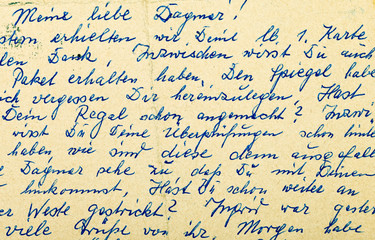 Meine liebe Dagmar!
stern erhielten wir Deine lb. 1. Karte
len Dank, Inzwischen wirst Du auch
Paket erhalten haben. Den Spiegel habe
ich vergessen Dir hereinzulegen, Hast
Dein Regal schon angemacht? Inzwi
wirst Du Deine Überprüfungen schon hinte
haben, wie sind diese denn ausgefall
e Dagmar sehe zu daß Du mit Deinen
hinkommst. Hast Du schon weiter an
er Weste gestrickt? Ingrid war gester
viele Grüße von ihr, Morgen habe